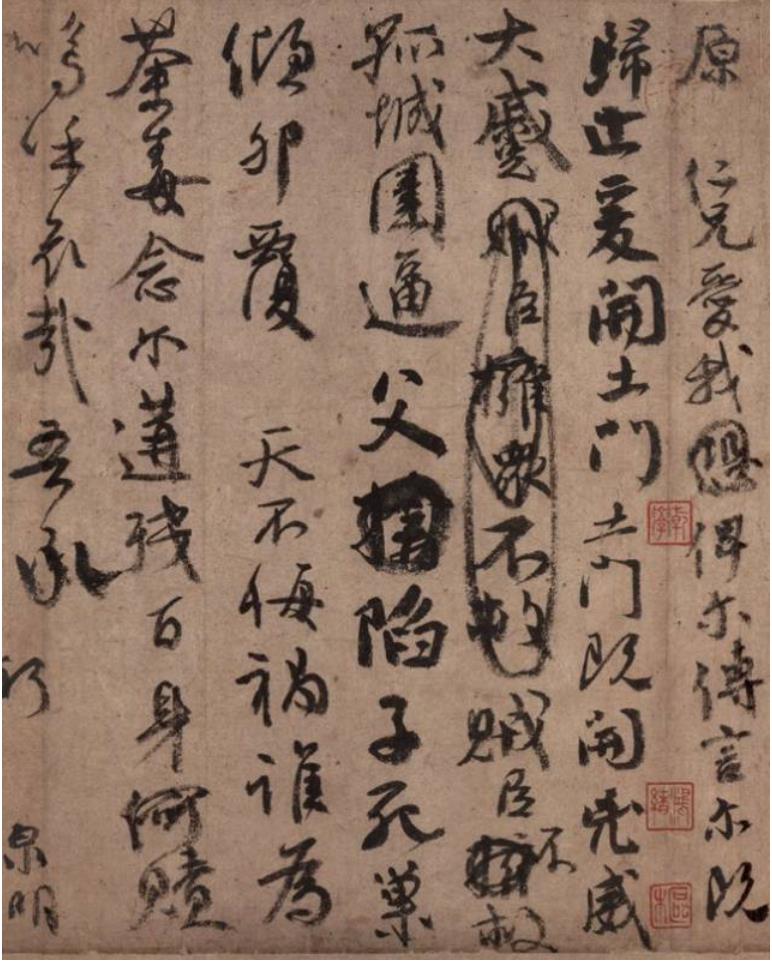 原 仁兄愛我恐俾尔傳言尔既
歸止爰開土門土門既開凶威
大蹙賊臣擁眾不救賊臣不救
孤城圍逼父陷子死巢
傾卵覆 天不悔禍誰為
荼毒念尔遘殘百身何贖
嗚乎哀哉吾承
泉明